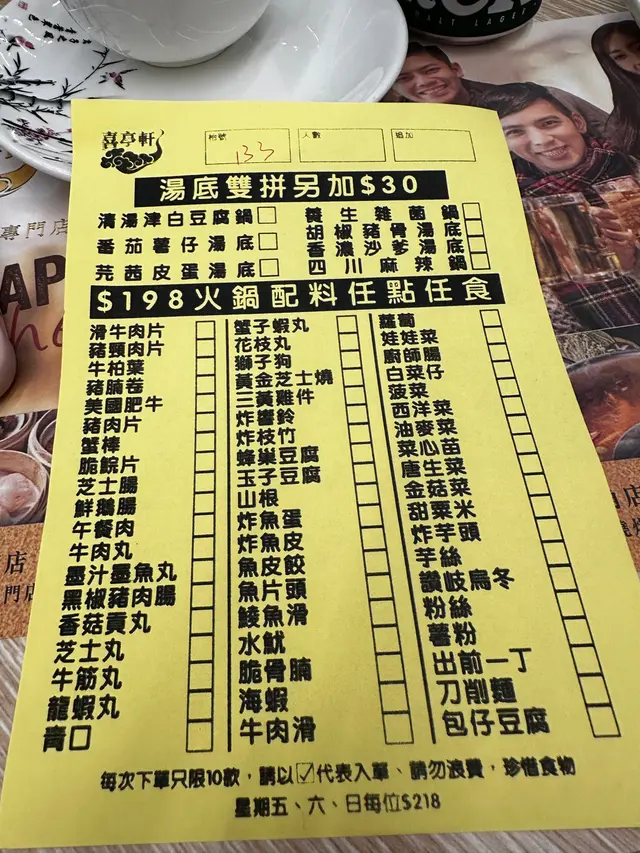 喜亭軒
枱號
133
人數
追加
湯底雙拼另加$30
清湯津白豆腐鍋
番茄薯仔湯底
芫茜皮蛋湯底
養生雜菌鍋
胡椒豬骨湯底
香濃沙爹湯底
四川麻辣鍋
$198火鍋配料任點任食
滑牛肉片
豬頸肉片
牛柏葉
豬腩卷
美國肥牛
豬肉片
蟹棒
脆鯇片
芝士腸
鮮鵝腸
午餐肉
牛肉丸
墨汁墨魚丸
黑椒豬肉腸
香菇貢丸
芝士丸
牛筋丸
龍蝦丸
青口
蟹子蝦丸
花枝丸
獅子狗
黃金芝士燒
三黃雞件
炸響鈴
炸枝竹
蜂巢豆腐
玉子豆腐
山根
炸魚蛋
炸魚皮
魚皮餃
魚片頭
鯪魚滑
水魷
脆骨腩
海蝦
牛肉滑
蘿蔔
娃娃菜
廚師腸
白菜仔
菠菜
西洋菜
油麥菜
菜心苗
唐生菜
金菇菜
甜粟米
炸芋頭
芋絲
讚岐烏冬
粉絲
薯粉
出前一丁
刀削麵
包仔豆腐
每次下單只限10款，請以☑代表入單、請勿浪費，珍惜食物
星期五、六、日每位$218
專門店
AP
he
店
門店
店
LAGER